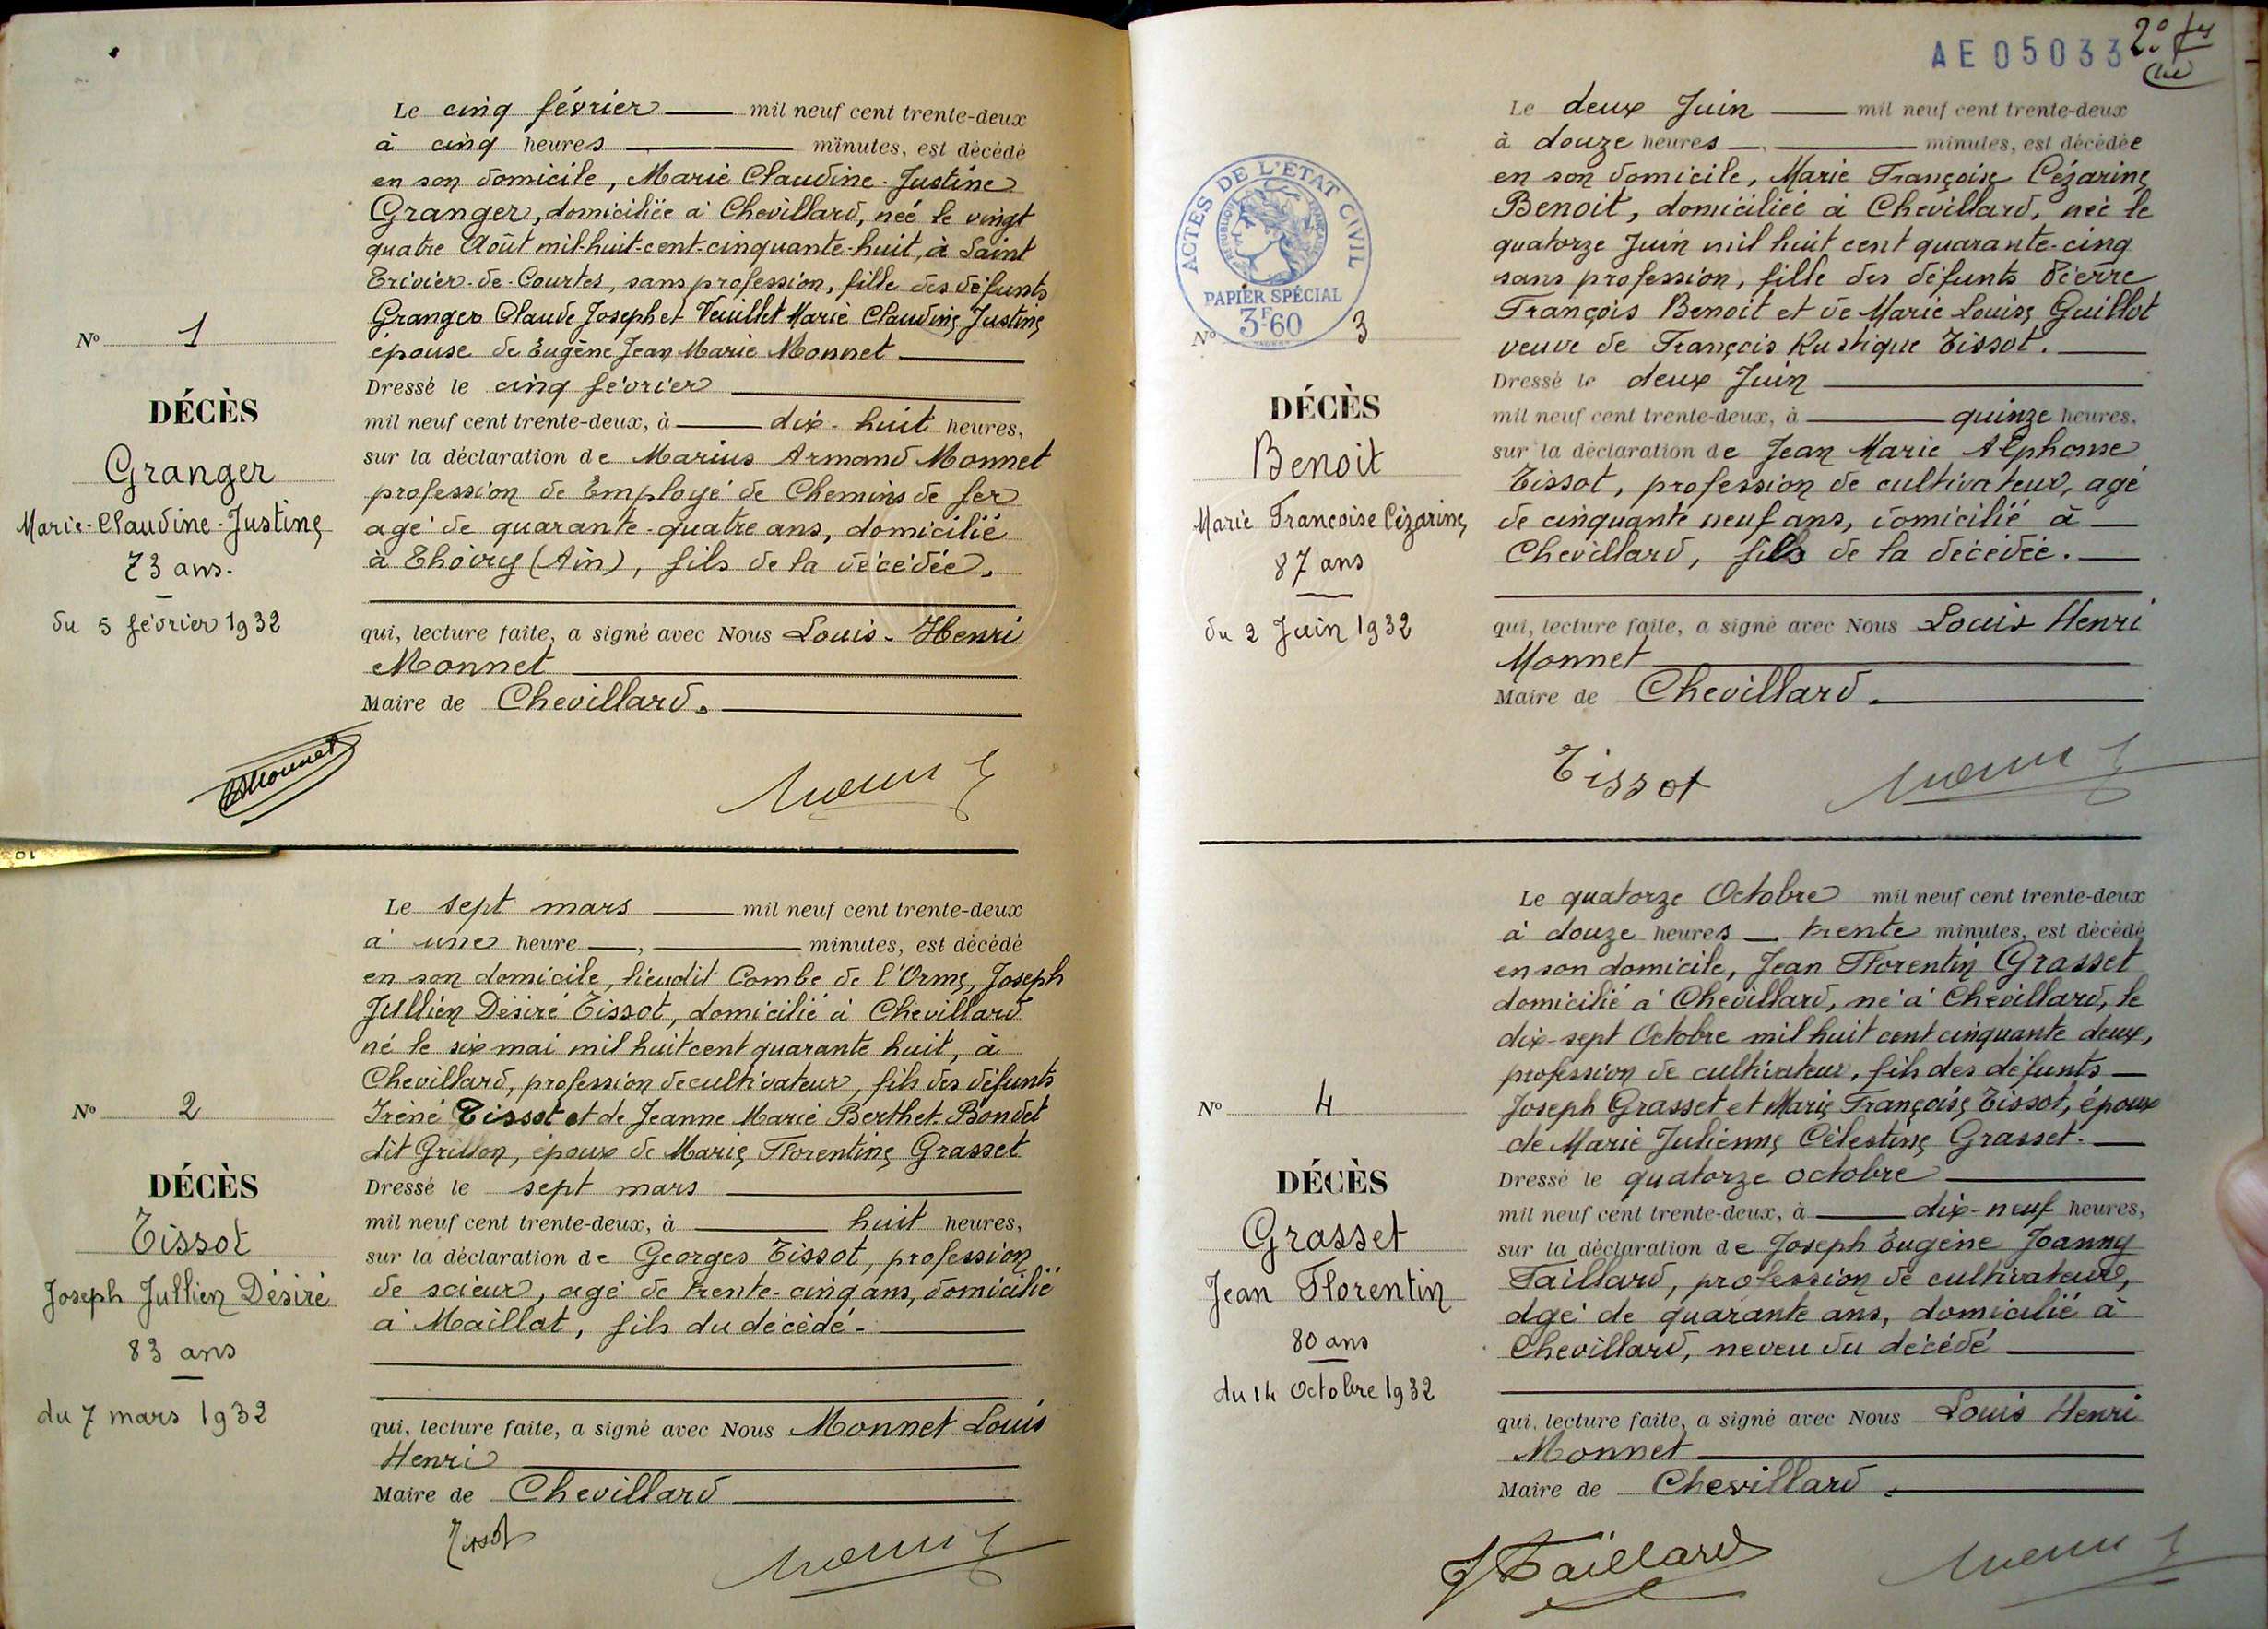 Le cinq février mil neuf cent trente-deux
à cinq heures minutes, est décédé
en son domicile, Marie Claudine-Justine
Granger, domiciliée à Chevillard, née le vingt
quatre Août mil-huit-cent-cinquante-huit, à Saint
Trivier-de-Courtes, sans profession, fille des défunts
Granger Claude Joseph et Veuillet Marie Claudine Justine
épouse de Eugène Jean Marie Monnet
Dressé le cinq février
mil neuf cent trente-deux, à dix-huit heures,
sur la déclaration de Marius Armand Monnet
profession de Employé de Chemins de fer
agé de quarante-quatre ans, domicilié
à Thoiry (Ain), fils de la décédée.
qui, lecture faite, a signé avec Nous Louis-Henri
Monnet
Maire de Chevillard.
N° 1
DÉCÈS
Granger
Marie-Claudine-Justine
73 ans.
du 5 février 1932
Monnet
Le sept mars mil neuf cent trente-deux
à une heure, minutes, est décédé
en son domicile, lieudit Combe de l'Orme, Joseph
Jullien Désiré Tissot, domicilié à Chevillard
né le six mai mil huit cent quarante huit, à
Chevillard, profession de cultivateur, fils des défunts
Iréné Tissot et de Jeanne Marie Berthet-Bondet
dit Grillon, époux de Marie Florentine Grasset
Dressé le sept mars
mil neuf cent trente-deux, à huit heures,
sur la déclaration de Georges Tissot, profession
de scieur, agé de trente-cinq ans, domicilié
à Maillat, fils du décédé.
qui, lecture faite, a signé avec Nous Monnet Louis
Henri
Maire de Chevillard
N° 2
DÉCÈS
Tissot
Joseph Jullien Désiré
83 ans
du 7 mars 1932
Tissot
AE 05033
2°
ACTES DE L'ÉTAT CIVIL
RÉPUBLIQUE FRANÇAISE
PAPIER SPÉCIAL
3F60
Le deux Juin mil neuf cent trente-deux
à douze heures, minutes, est décédée
en son domicile, Marie Françoise Cézarine
Benoit, domiciliée à Chevillard, née le
quatorze Juin mil huit cent quarante-cinq
sans profession, fille des défunts Pierre
François Benoit et de Marie Louise Guillot
veuve de François Rustique Tissot.
Dressé le deux Juin
mil neuf cent trente-deux, à quinze heures,
sur la déclaration de Jean Marie Alphonse
Tissot, profession de cultivateur, agé
de cinquante neuf ans, domicilié à
Chevillard, fils de la décédée.
qui, lecture faite, a signé avec Nous Louis Henri
Monnet
Maire de Chevillard.
N° 3
DÉCÈS
Benoit
Marie Françoise Cézarine
87 ans
du 2 Juin 1932
Tissot
Le quatorze Octobre mil neuf cent trente-deux
à douze heures trente minutes, est décédé
en son domicile, Jean Florentin Grasset
domicilié à Chevillard, né à Chevillard, le
dix-sept Octobre mil huit cent cinquante deux,
profession de cultivateur, fils des défunts
Joseph Grasset et Marie Françoise Tissot, époux
de Marie Julienne Célestine Grasset.
Dressé le quatorze octobre
mil neuf cent trente-deux, à dix-neuf heures,
sur la déclaration de Joseph Eugène Joanny
Taillard, profession de cultivateur,
agé de quarante ans, domicilié à
Chevillard, neveu du décédé
qui, lecture faite, a signé avec Nous Louis Henri
Monnet
Maire de Chevillard.
N° 4
DÉCÈS
Grasset
Jean Florentin
80 ans
du 14 Octobre 1932
J Taillard